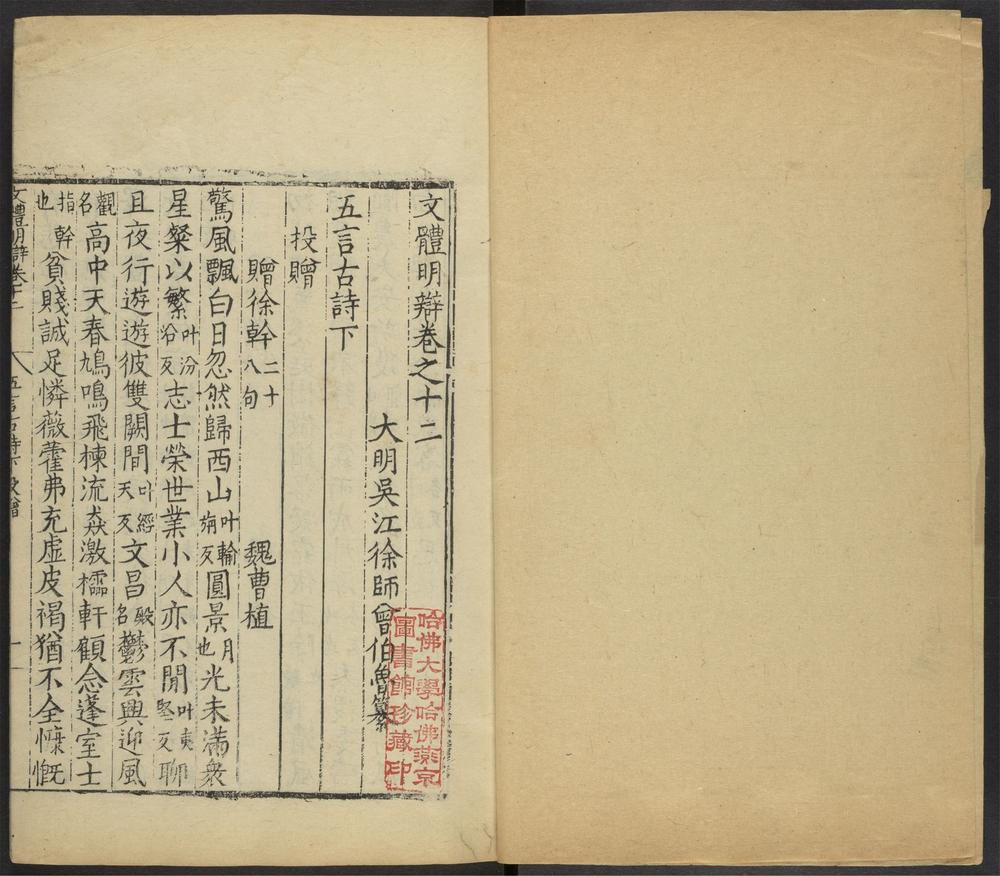 文體明辯卷之十二
大明吳江徐師曾伯魯纂
五言古詩下
投贈
贈徐幹二十八句 魏曹植
驚風飄白日忽然歸西山叶輸旃反圓景月也光未滿衆
星粲以繁叶汾沿反志士榮世業小人亦不閒叶奭堅反聊
且夜行遊遊彼雙闕間叶經天反文昌殿名鬱雲興迎風
觀名高中天春鳩鳴飛棟流猋激櫺軒顧念蓬室士
指幹也貧賤誠足憐薇藿弗充虛皮褐猶不全慷慨
文體明辯卷十二 五言古詩下投贈 一
哈佛大學哈佛燕京
圖書館珍藏印